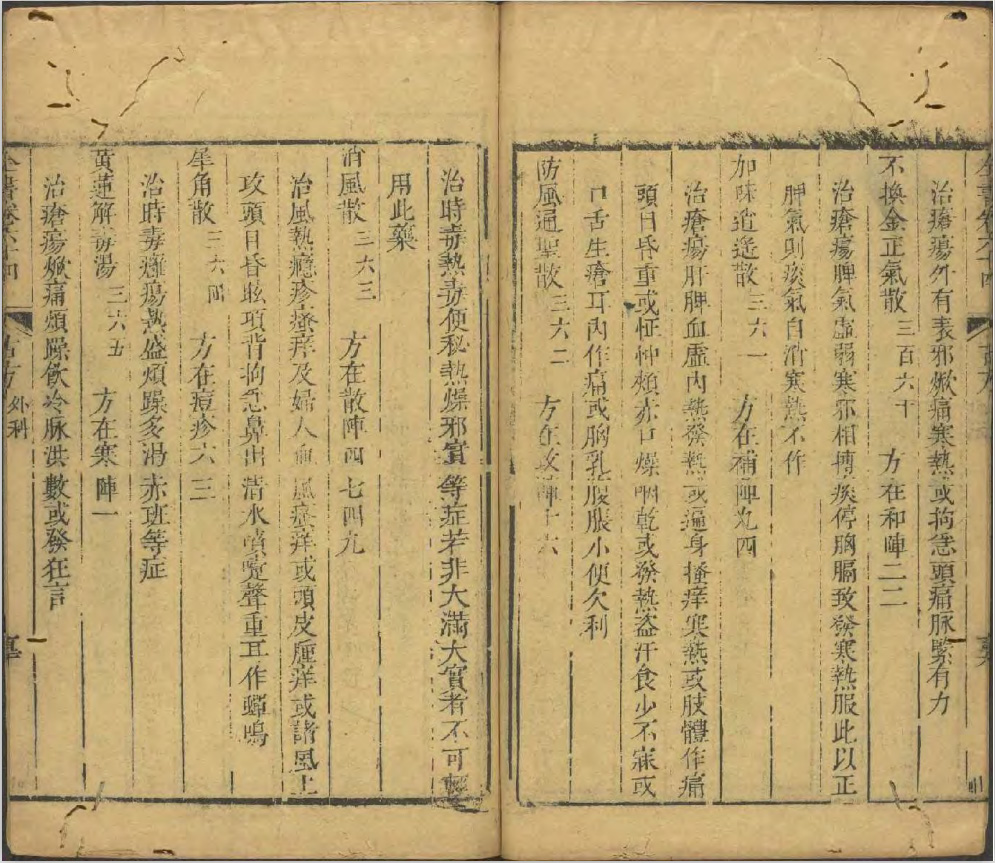 治瘡瘍外有表邪焮痛寒熱或拘急頭痛脉緊有力
不換金正氣散 三百六十 方在和陣二二
治瘡瘍脾氣虛弱寒邪相搏痰停胸膈致發寒熱服此以正
脾氣則痰氣自消寒熱不作
加味逍遙散 三六一 方在補陣九四
治瘡瘍肝脾血虛內熱發熱或遍身搔痒寒熱或肢體作痛
頭目昏重或怔忡頰赤口燥咽乾或發熱盜汗食少不寐或
口舌生瘡耳內作痛或胸乳腹脹小便欠利
防風通聖散 三六二 方在攻陣十六
治時毒熱毒便秘熱燥邪實等症若非大滿大實者不可輕
用此藥
消風散 三六三 方在散陣四七四九
治風熱癮疹瘙痒及婦人血風瘙痒或頭皮腫痒或諸風上
攻頭目昏眩項背拘急鼻出清水嚏聲重耳作蟬鳴
犀角散 三六四 方在痘疹六三
治時毒癰瘍熱盛煩躁多渴赤班等症
黃蓮解毒湯 三六五 方在寒陣一
治瘡瘍焮痛煩躁飲冷脉洪數或發狂言
全書卷六十四 古方 外科